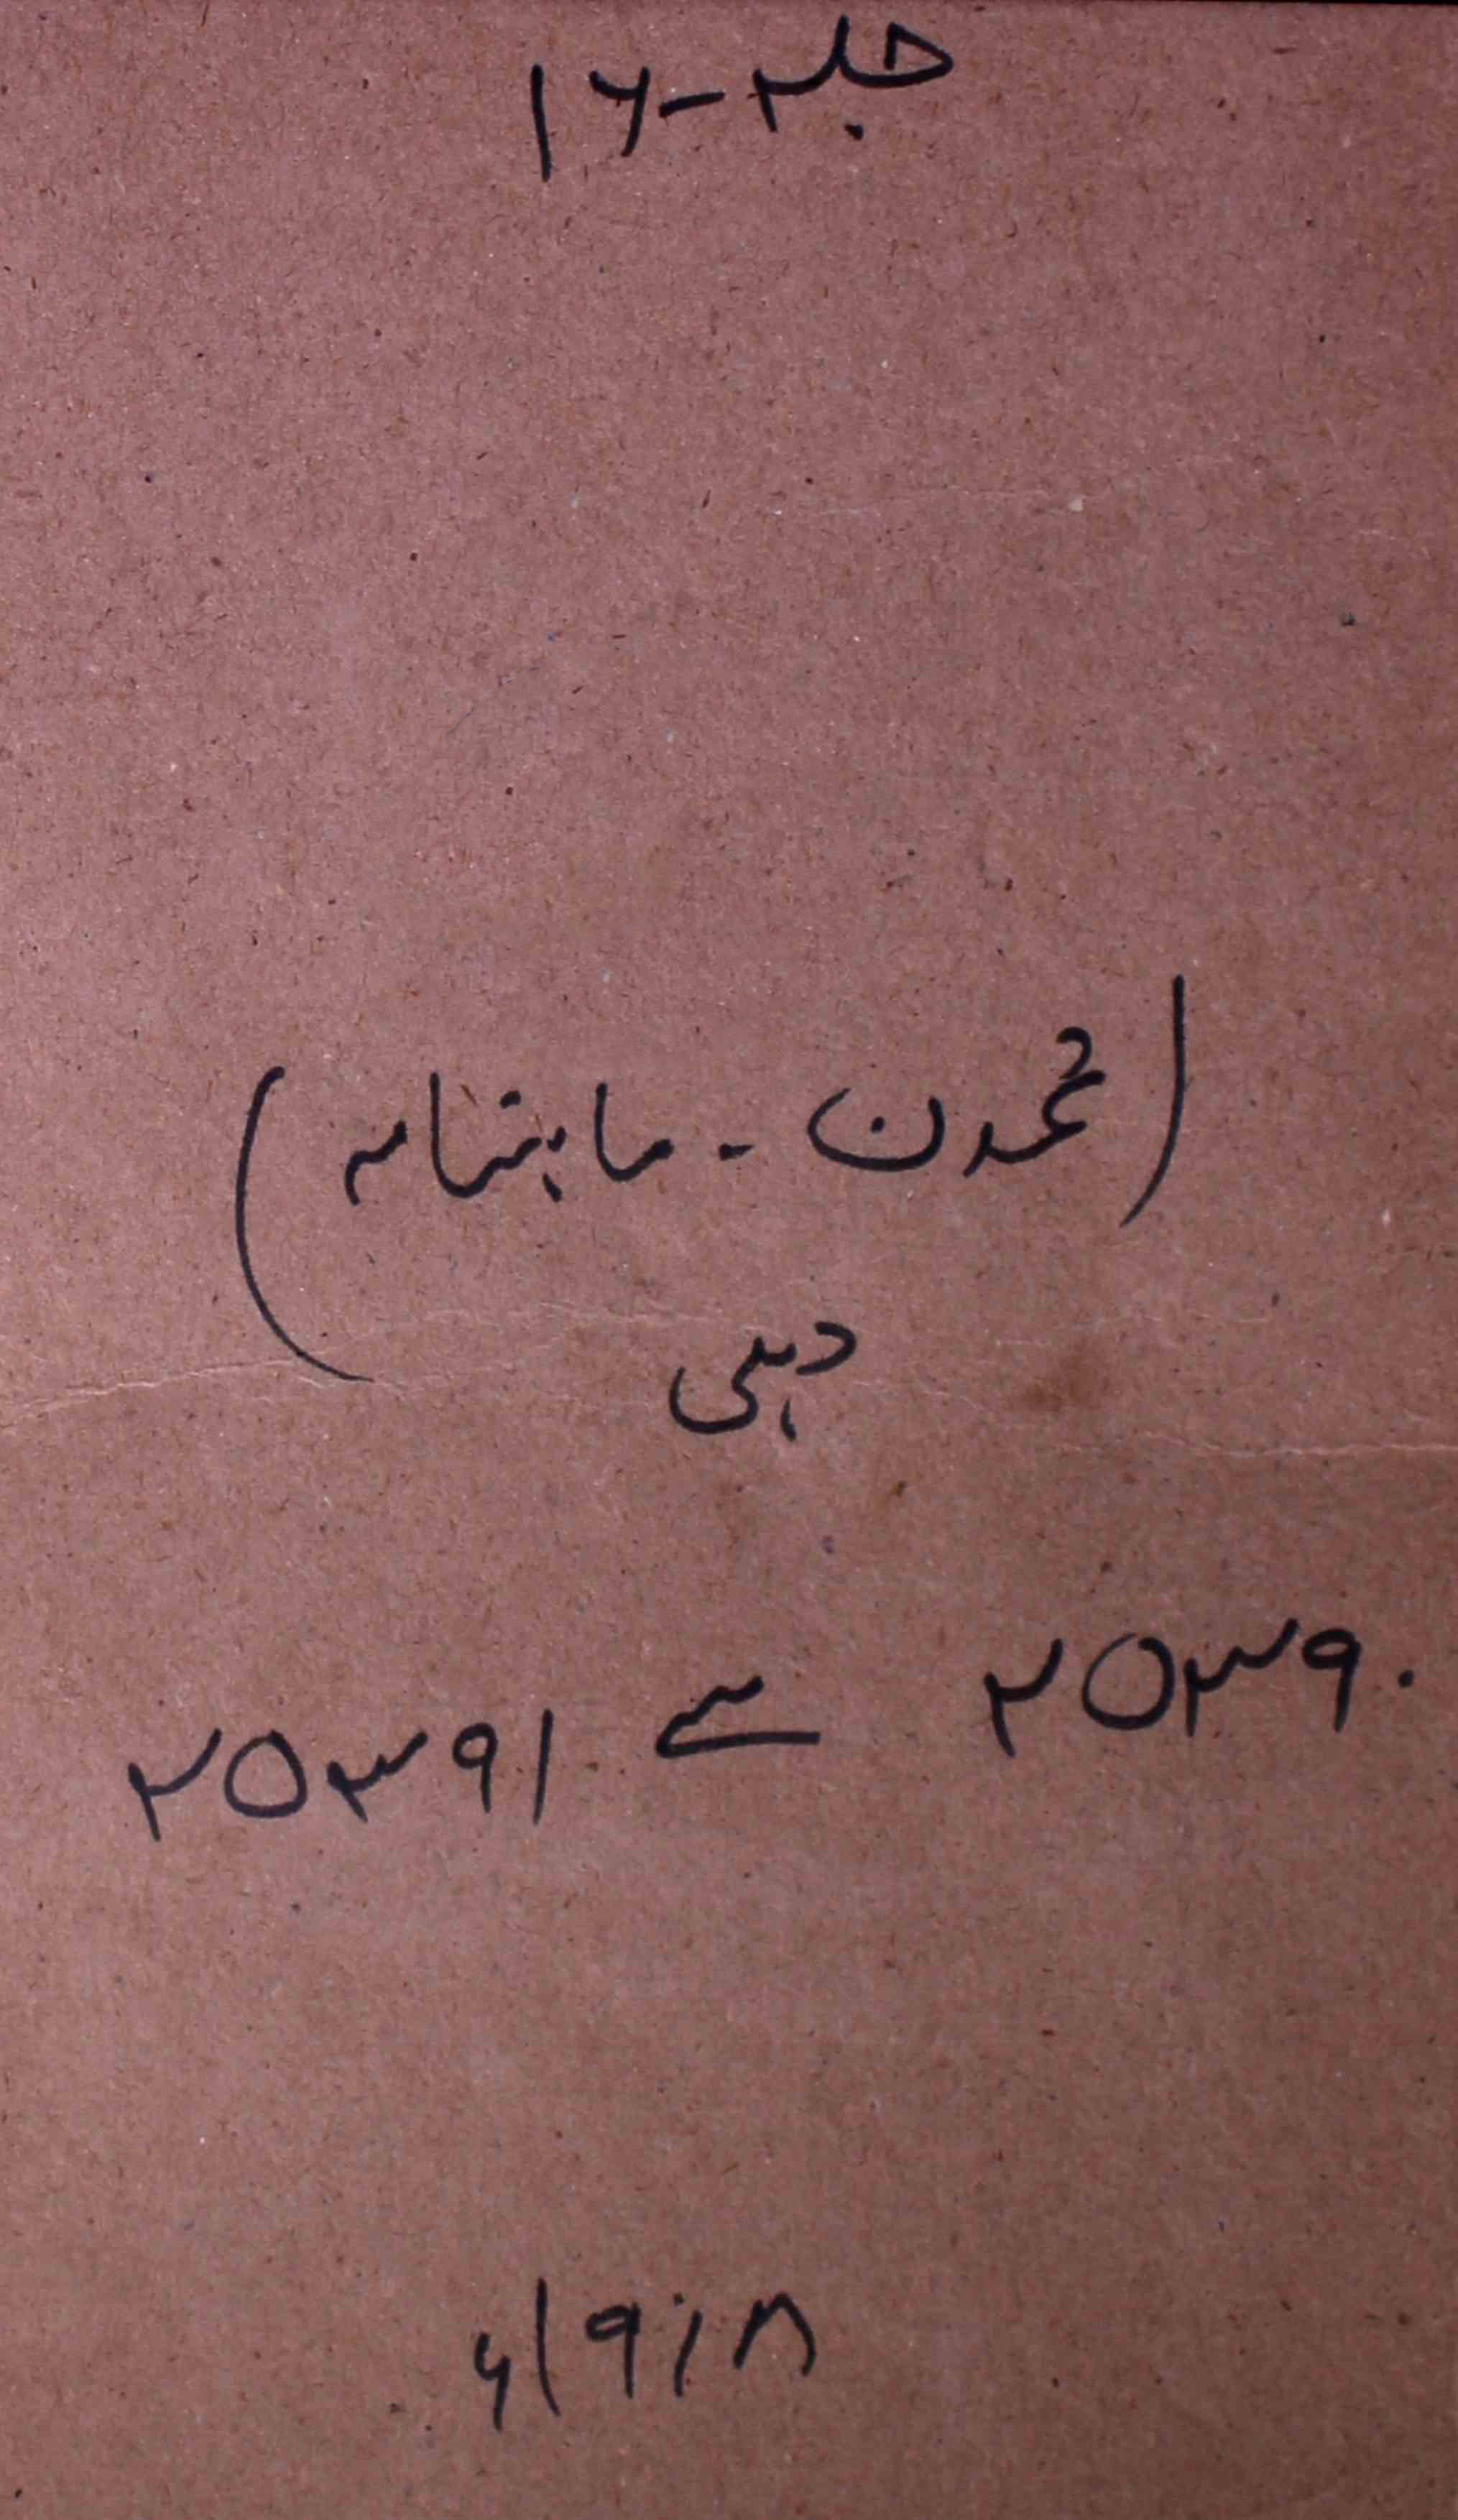 جلد - ۱۶
(تمدن - ماہنامہ)
دہلی
۲۵۳۹۰ سے ۲۵۳۹۱
۱۹۱۸ء